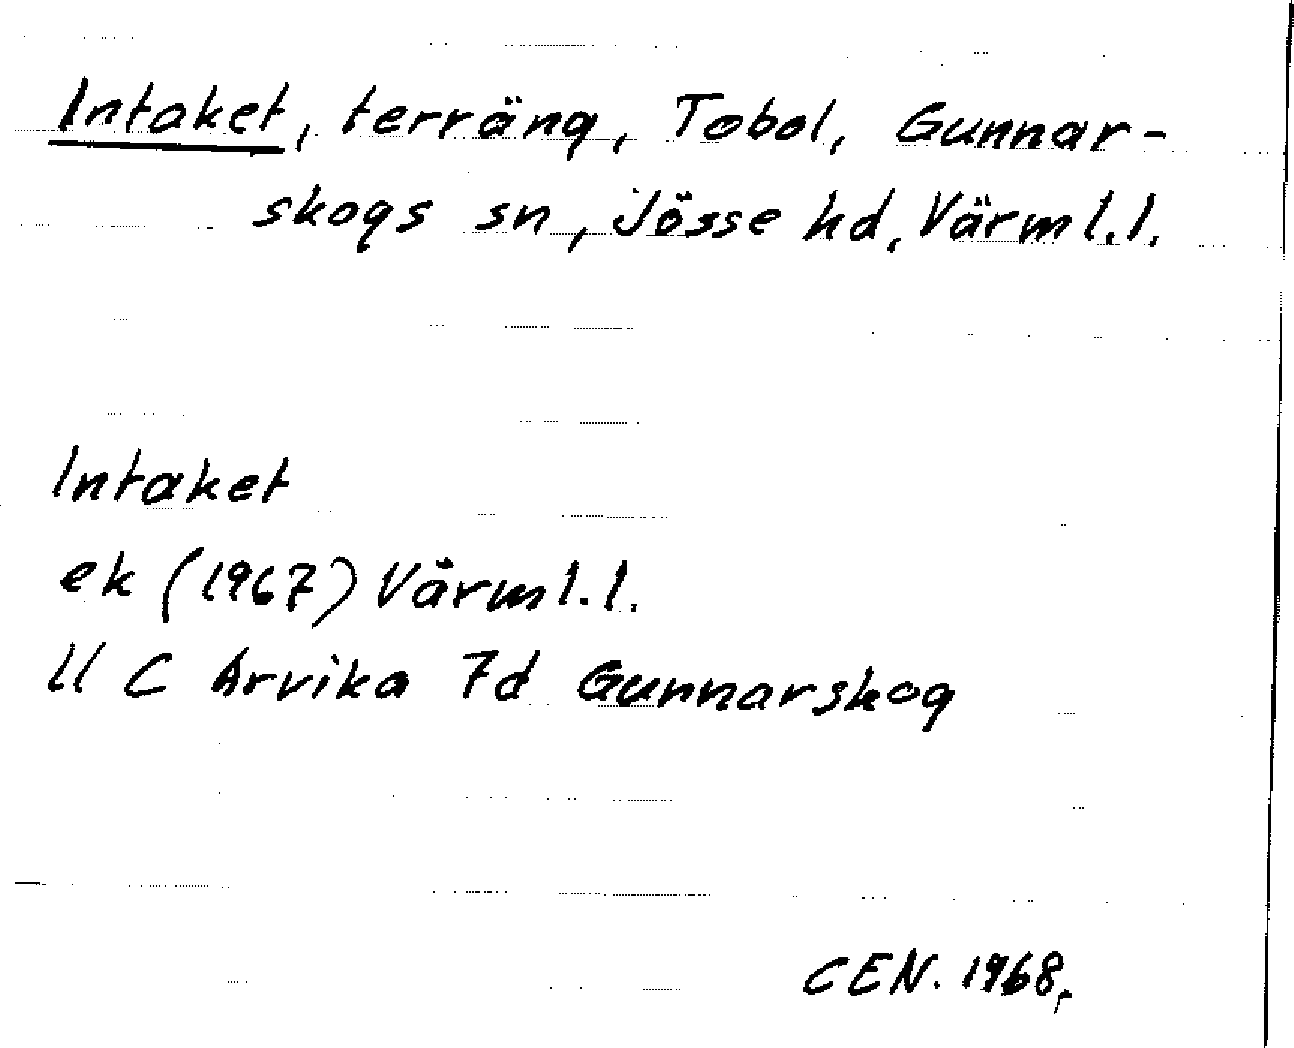 Intaket, terräng, Tobol, Gunnar-
skogs sn, Jösse hd, Värml.l.
Intaket
ek (1967) Värml.l.
11 C Arvika 7d Gunnarskog
CEN. 1968,